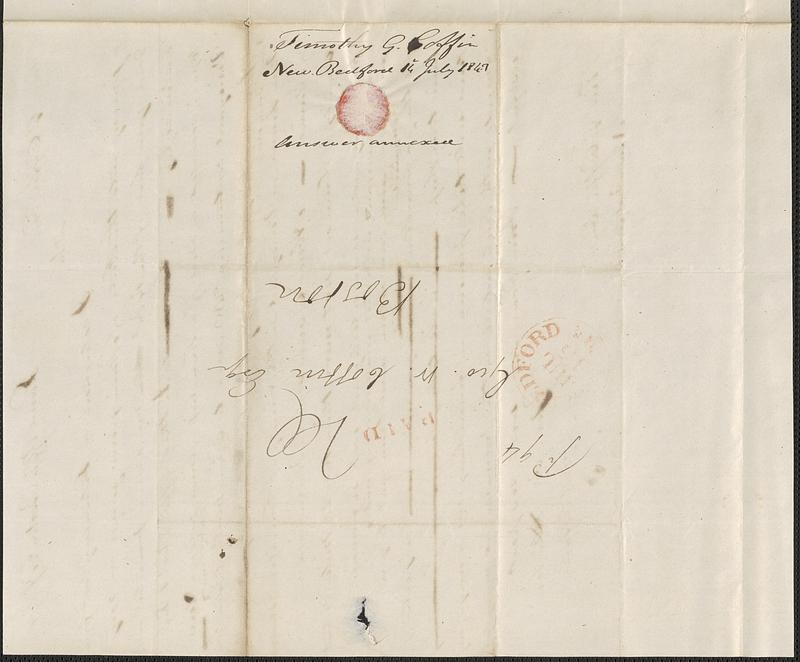 Timothy G. Coffin
New Bedford 14 July 184
Answer annexed
Boston
Geo. W. Coffin Esq
PAID
DFORD